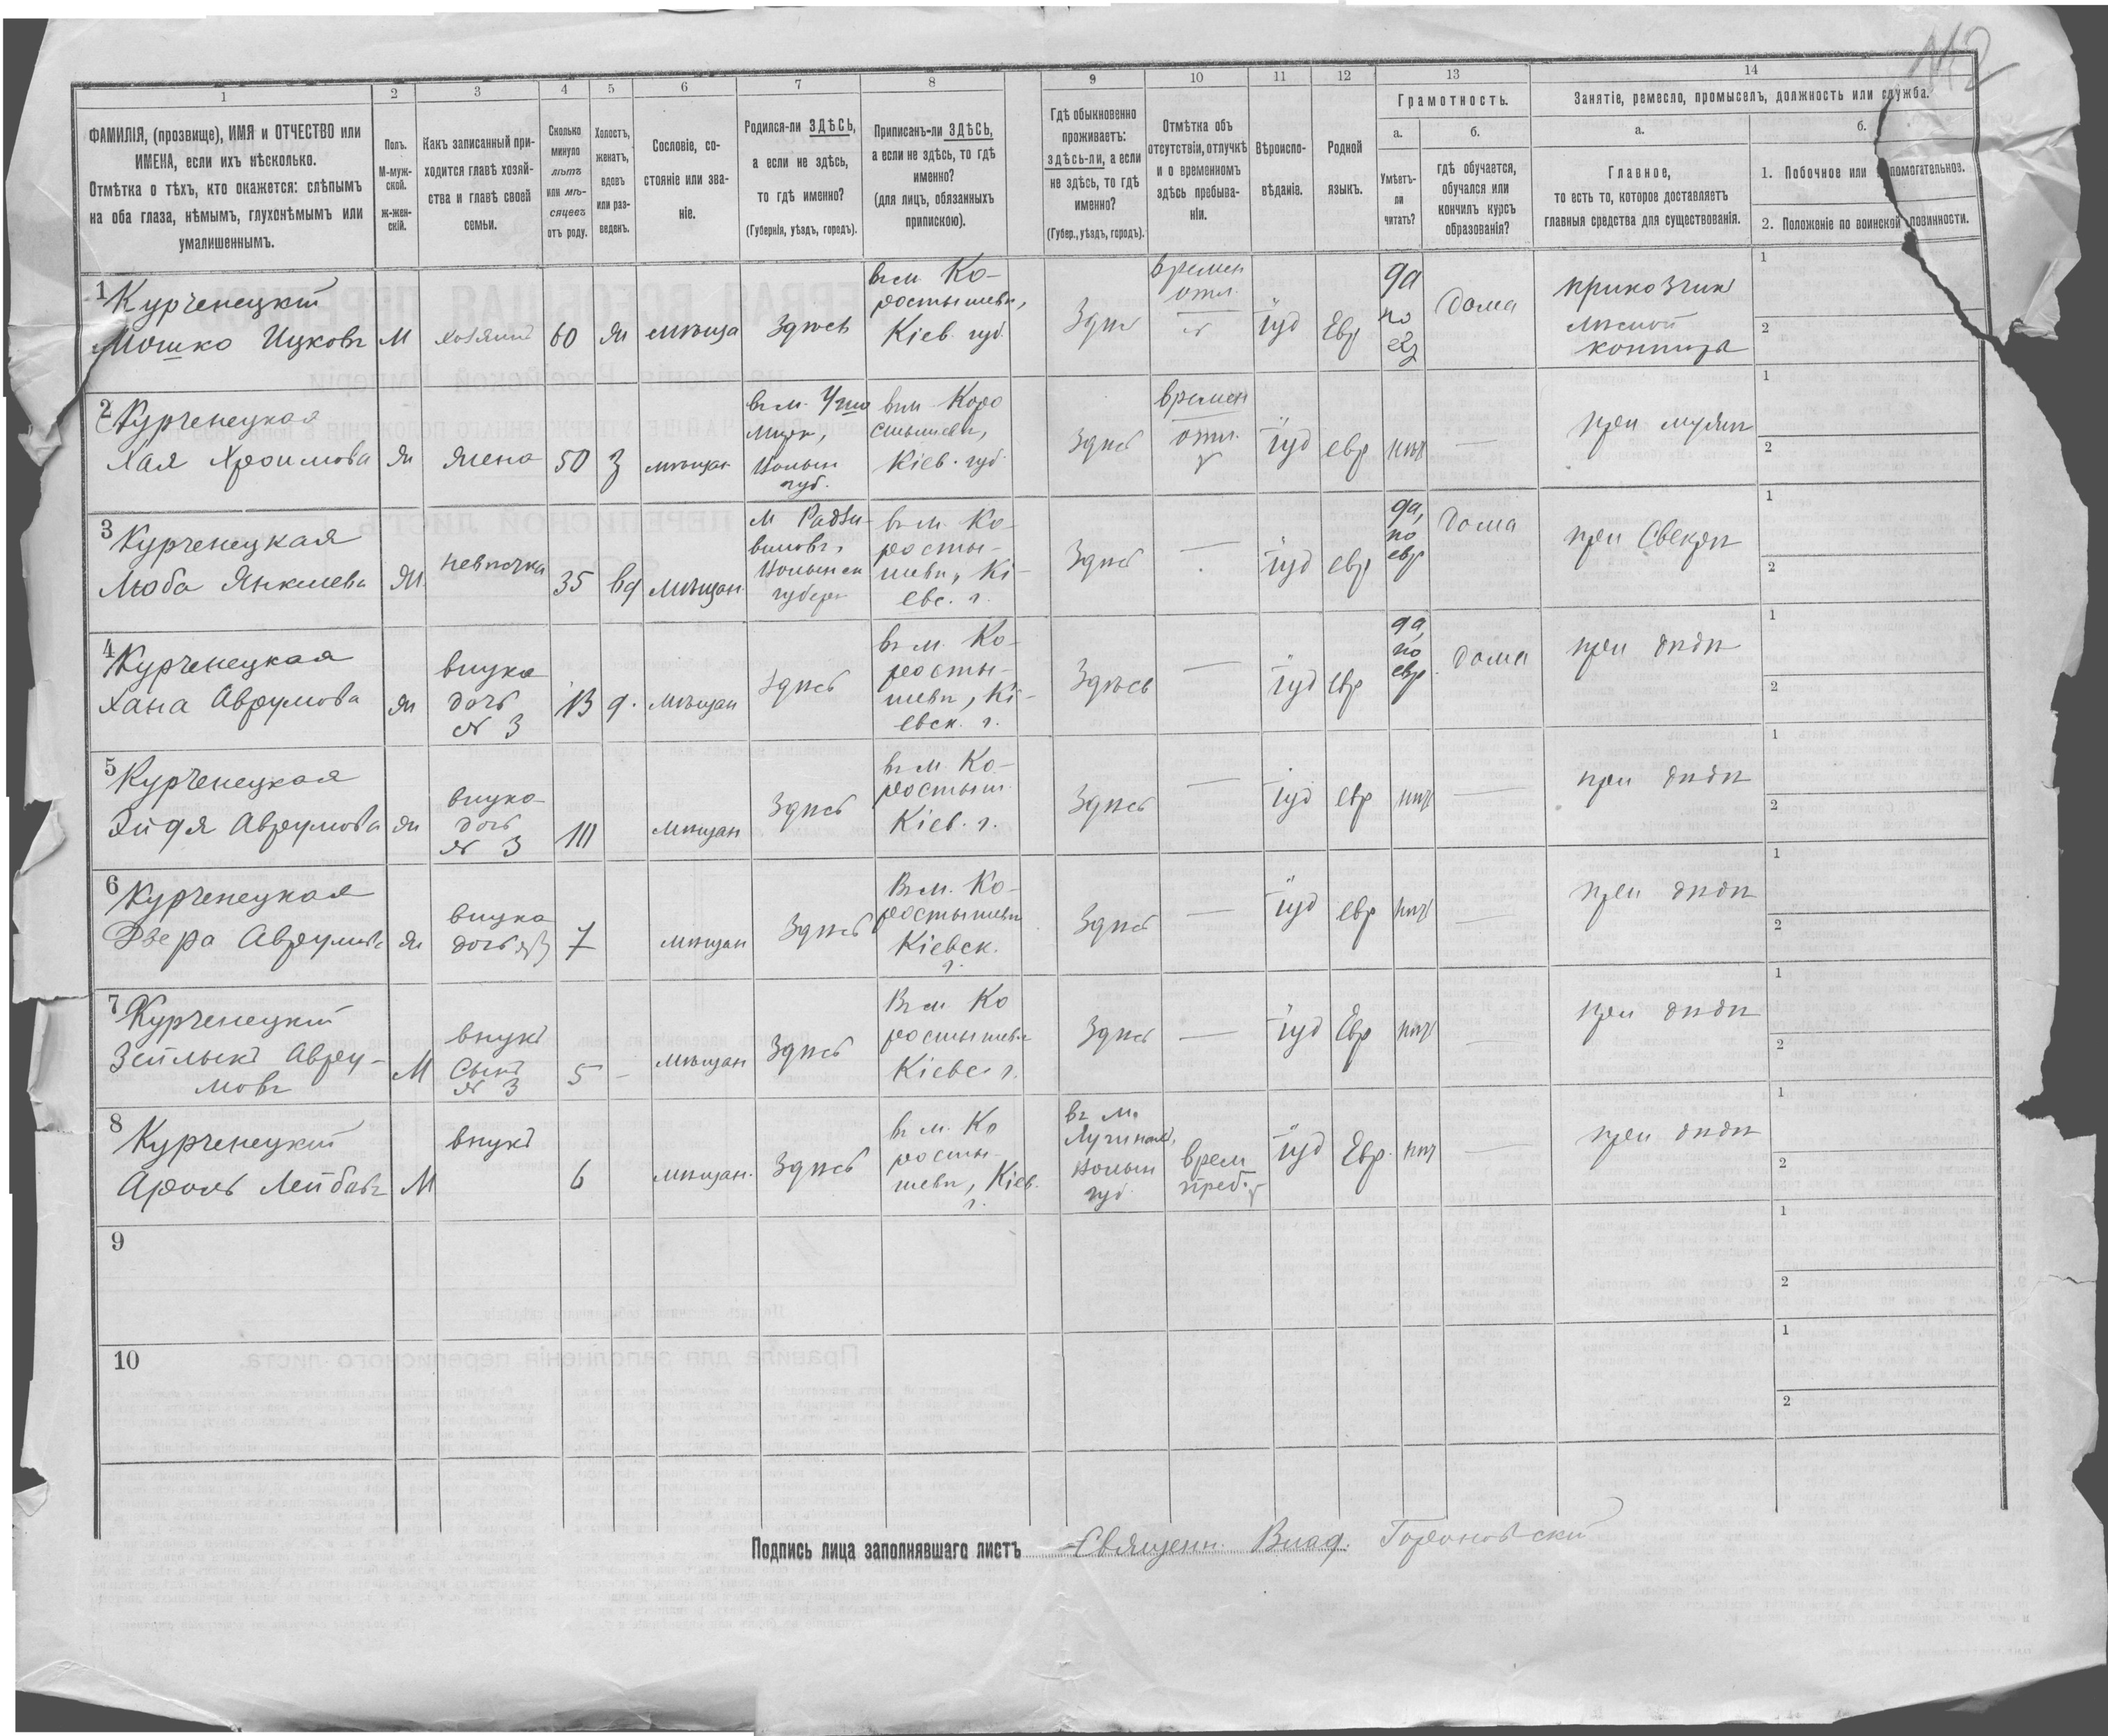 №2
1 2 3 4 5 6 7 8 9 10 11 12 13 14
ФАМИЛІЯ, (прозвище), ИМЯ и ОТЧЕСТВО или
ИМЕНА, если ихъ нѣсколько.
Отмѣтка о тѣхъ, кто окажется: слѣпымъ
на оба глаза, нѣмымъ, глухонѣмымъ или
умалишеннымъ.
Полъ.
М-муж-
ской.
ж-жен-
скій.
Какъ записанный при-
ходится главѣ хозяй-
ства и главѣ своей
семьи.
Сколько
минуло
лѣтъ
или мѣ-
сяцевъ
отъ роду.
Холостъ,
женатъ,
вдовъ
или раз-
веденъ.
Сословіе, со-
стояніе или зва-
ніе.
Родился-ли ЗДѢСЬ,
а если не здѣсь,
то гдѣ именно?
(Губернія, уѣздъ, городъ).
Приписанъ-ли ЗДѢСЬ,
а если не здѣсь, то гдѣ
именно?
(для лицъ, обязанныхъ
припискою).
Гдѣ обыкновенно
проживаетъ:
здѣсь-ли, а если
не здѣсь, то гдѣ
именно?
(Губер., уѣздъ, городъ).
Отмѣтка объ
отсутствіи, отлучкѣ
и о временномъ
здѣсь пребыва-
ніи.
Вѣроиспо-
вѣданіе.
Родной
языкъ.
Грамотность.
а.
Умѣетъ-
ли
читать?
б.
гдѣ обучается,
обучался или
кончилъ курсъ
образованія?
Занятіе, ремесло, промыселъ, должность или служба.
а.
Главное,
то есть то, которое доставляетъ
главныя средства для существованія.
б.
1. Побочное или вспомогательное.
2. Положеніе по воинской повинности.
1 Курченецкій
Мошко Ицковъ
М
хозяинъ
60
ж
мѣща
Здѣсь
въ м. Ко-
ростышевѣ,
Кіев. губ.
Здѣс
времен
отл.
іуд
Евр
да
по
евр
Дома
приказчик
лѣсной
контора
1
2
2 Курченецкая
Хая Хроимова
ж
жена
50
З
мѣщан
въ м. Ушо
мирѣ,
Волын
губ.
въ м. Коро
стышевѣ,
Кіев. губ.
Здѣсь
времен
отл.
іуд
евр
нѣт
—
при мужѣ
1
2
3 Курченецкая
Люба Янкелева
ж
невѣстка
35
вд
мѣщан.
М Радзи-
виловъ,
Волынск
губерн
въ м. Ко-
росты-
шевѣ, Кі-
евс. г.
Здѣсь
—
іуд
евр
да,
по
евр
Дома
при свекрѣ
1
2
4 Курченецкая
Хана Аврумова
ж
внука
дочь
№ 3
13
д.
мѣщан
Здѣсь
въ м. Ко-
росты-
шевѣ, Кі-
евск. г.
Здѣсь
—
іуд
евр
да,
по
евр.
Дома
при дѣдѣ
1
2
5 Курченецкая
Эйдя Аврумова
ж
внука
дочь
№ 3
мѣщан
Здѣсь
въ м. Ко-
ростыш.
Кіев. г.
Здѣсь
—
іуд
евр
нѣт
—
при дѣдѣ
1
2
6 Курченецкая
Двера Аврумова
ж
внука
дочь №3
7
мѣщан
Здѣсь
Въ м. Ко-
ростышевѣ
Кіевск.
г.
Здѣсь
—
іуд
евр
нѣт
—
при дѣдѣ
1
2
7 Курченецкій
Зейлыкъ Авру-
мовъ
М
внукъ
Сынъ
№ 3
5
-
мѣщан
Здѣсь
Въ м Ко
ростышевѣ
Кіевс. г.
Здѣсь
—
іуд
Евр
нѣт
—
при дѣдѣ
1
2
8 Курченецкій
Ароль Лейбовъ
М
внукъ
6
мѣщан.
Здѣсь
въ м. Ко
росты-
шевѣ, Кіев.
г.
въ м.
Лугинахъ,
Волын
губ
врем
преб.
іуд
Евр.
нѣт
—
при дѣдѣ
1
2
9
1
2
10
1
2
Подпись лица заполнявшаго листъ Священн. Влад. Горановскій